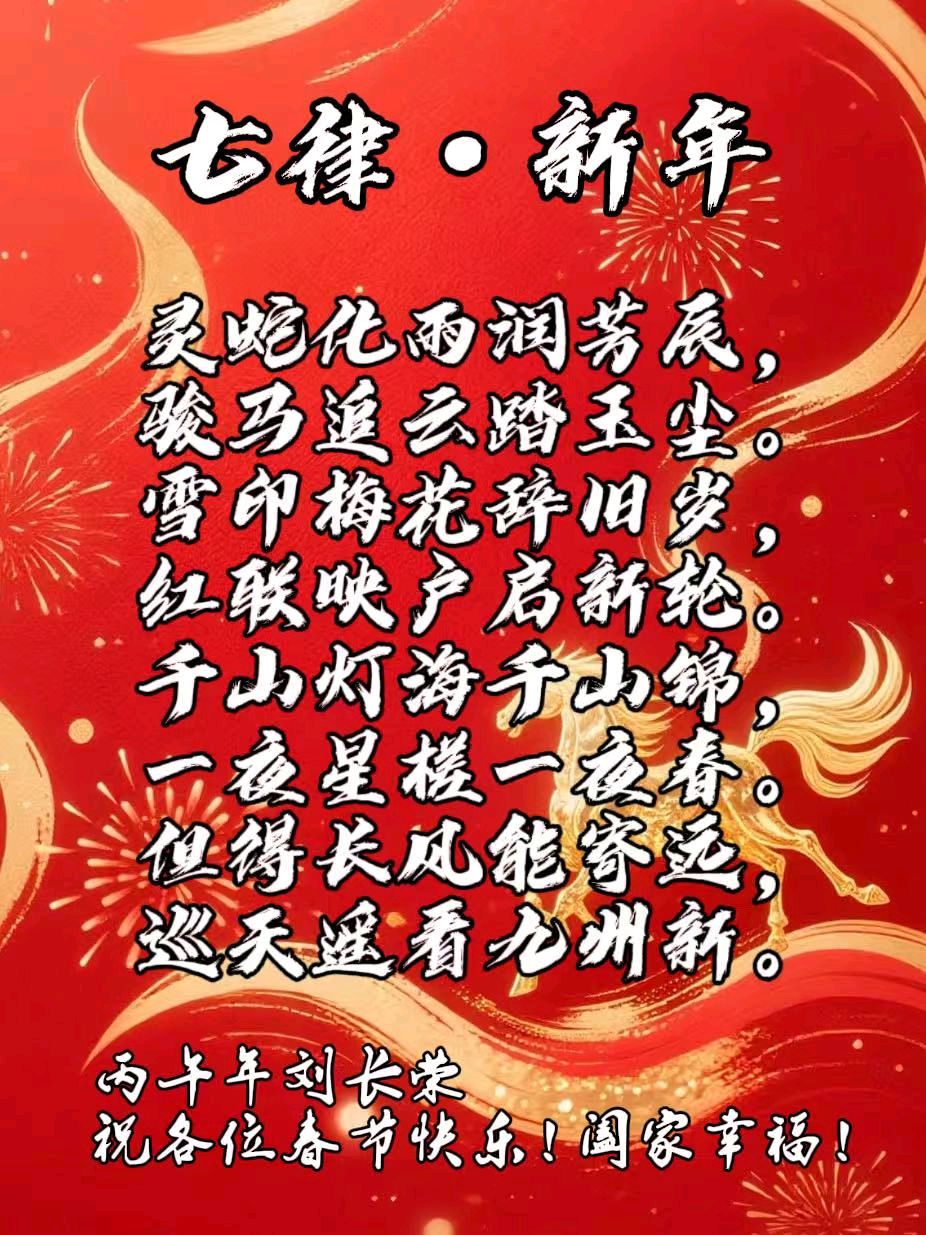 七律·新年
灵蛇化雨润芳辰，
骏马追云踏玉尘。
雪印梅花辞旧岁，
红联映户启新轮。
千山灯海千山锦，
一夜星槎一夜春。
但得长风能寄远，
巡天遥看九州新。
丙午年刘长荣
祝各位春节快乐！阖家幸福！